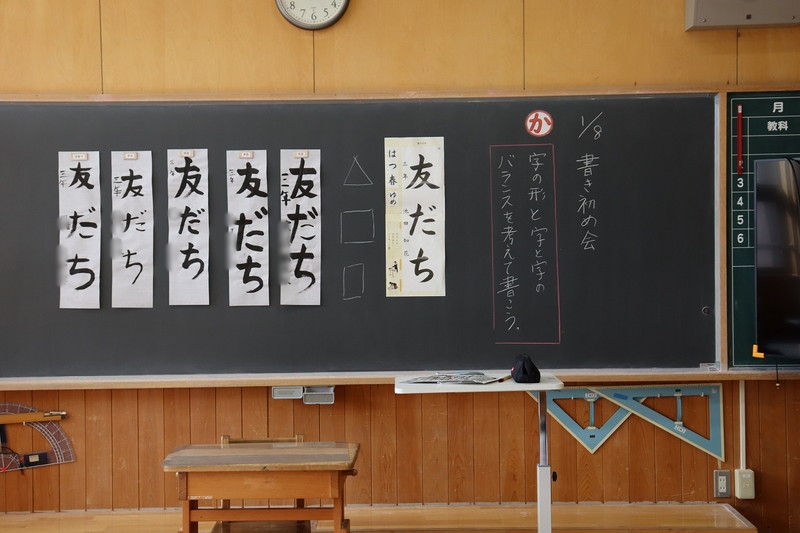 1/8 書き初め会
か
字の形と字と字の
バランスを考えて書こう。
友だち
三年
はつ春 ゆめ
友だち
三年
友だち
三年
友だち
三年
友だち
三年
友だち
三年
月
教科
3
4
5
6